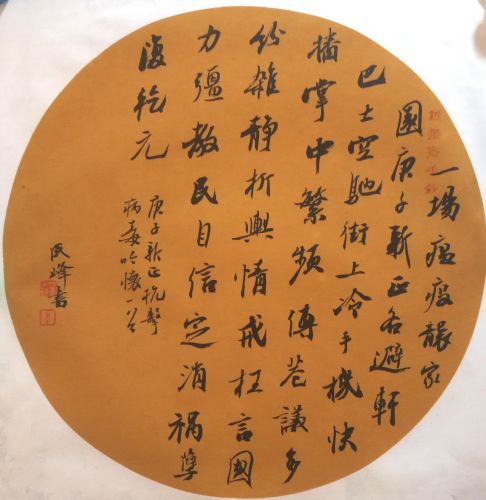 一場瘟疫襲家
國庚子新正各避軒
巴士空馳街上冷手機快
播掌中繁頻傳巷議多
紛雜靜析輿情戒枉言國
力彊教民自信定消禍孽
復乾元
庚子新正抗擊
病毒吟懷一首
民峰書